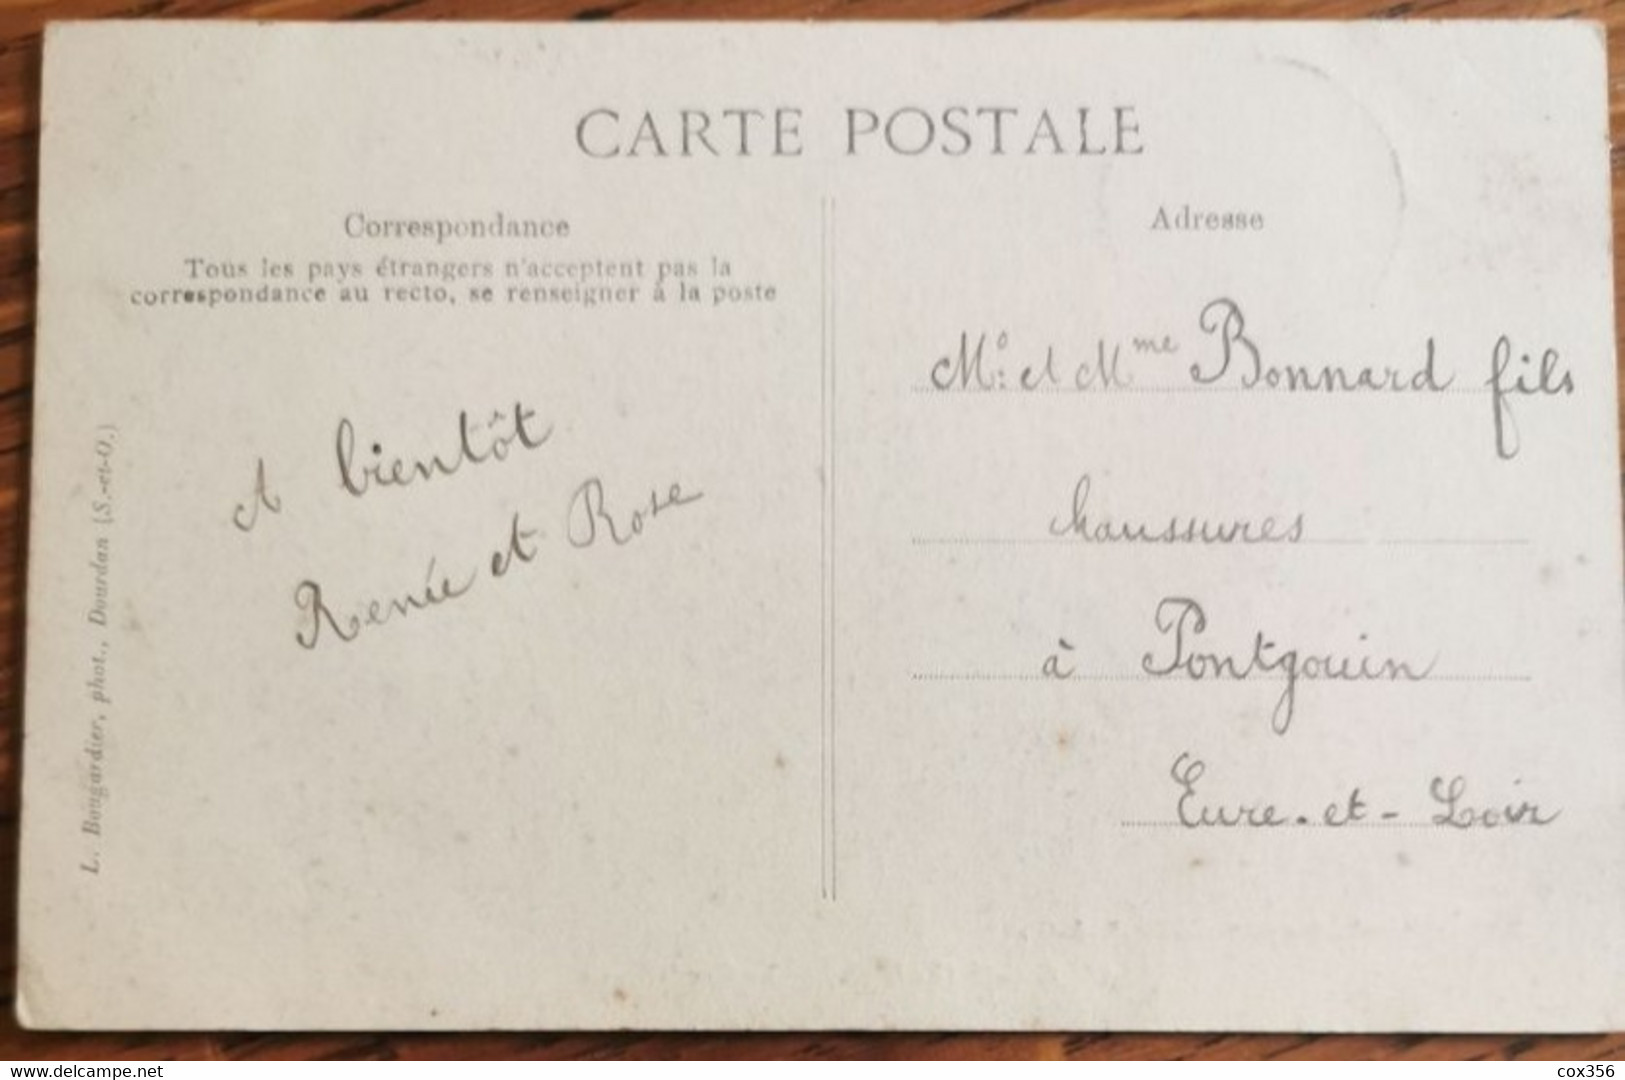 CARTE POSTALE
Correspondance
Tous les pays étrangers n'acceptent pas la
correspondance au recto, se renseigner à la poste
A bientôt
Renée et Rose
L. Bougardier, phot., Dourdan (S.-et-O.)
Adresse
Mr et Mme Bonnard fils
chaussures
à Pontgouin
Eure-et-Loir
www.delcampe.net
cox356